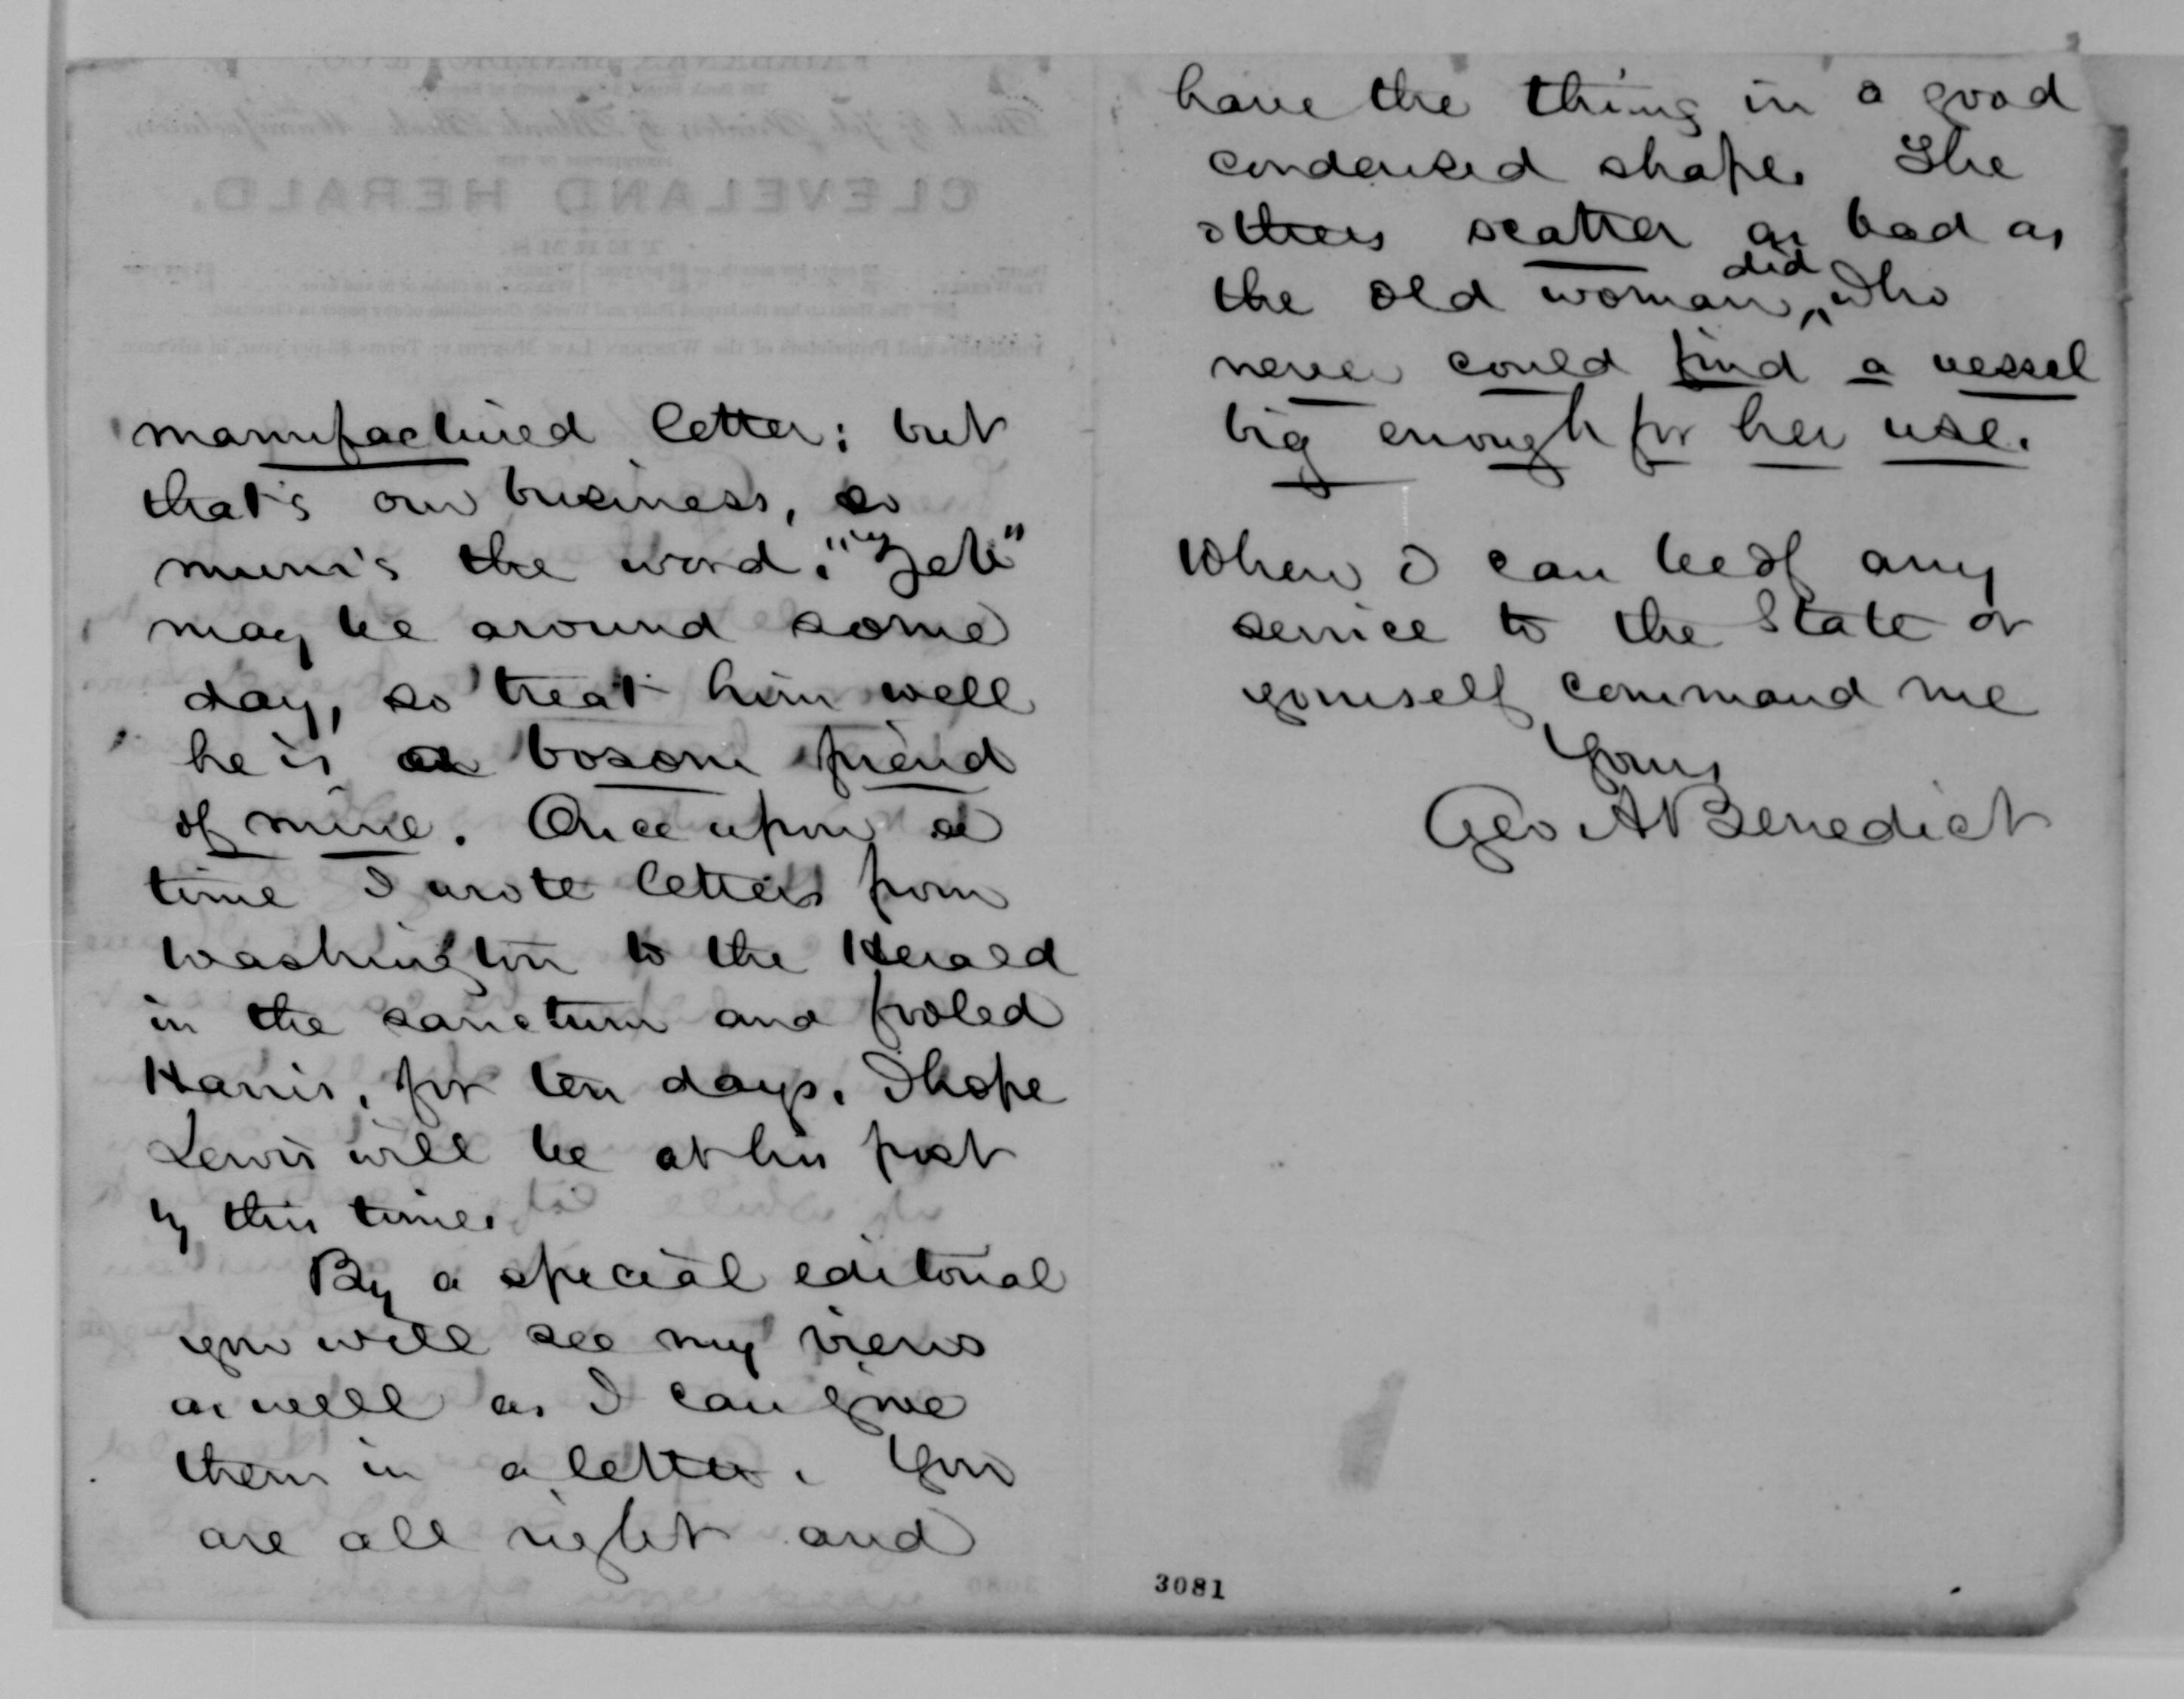 manufactured letter: but
that's our business, so
mum's the word. "Zeke"
may be around some
day, so treat him well
he is a bosom friend
of mine. Once upon a
time I wrote letters from
Washington to the Herald
in the sanctum and fooled
Harris, for ten days. I hope
Lewis will be at his post
by this time.
By a special editorial
you will see my views
as well as I can give
them in a letter. You
are all right and
have the thing in a good
condensed shape. The
others scatter as bad as
did
the old woman, who
never could find a vessel
big enough for her use.
When I can be of any
service to the State or
yourself command me
Yours
Geo A Benedict
3081
CLEVELAND HERALD.